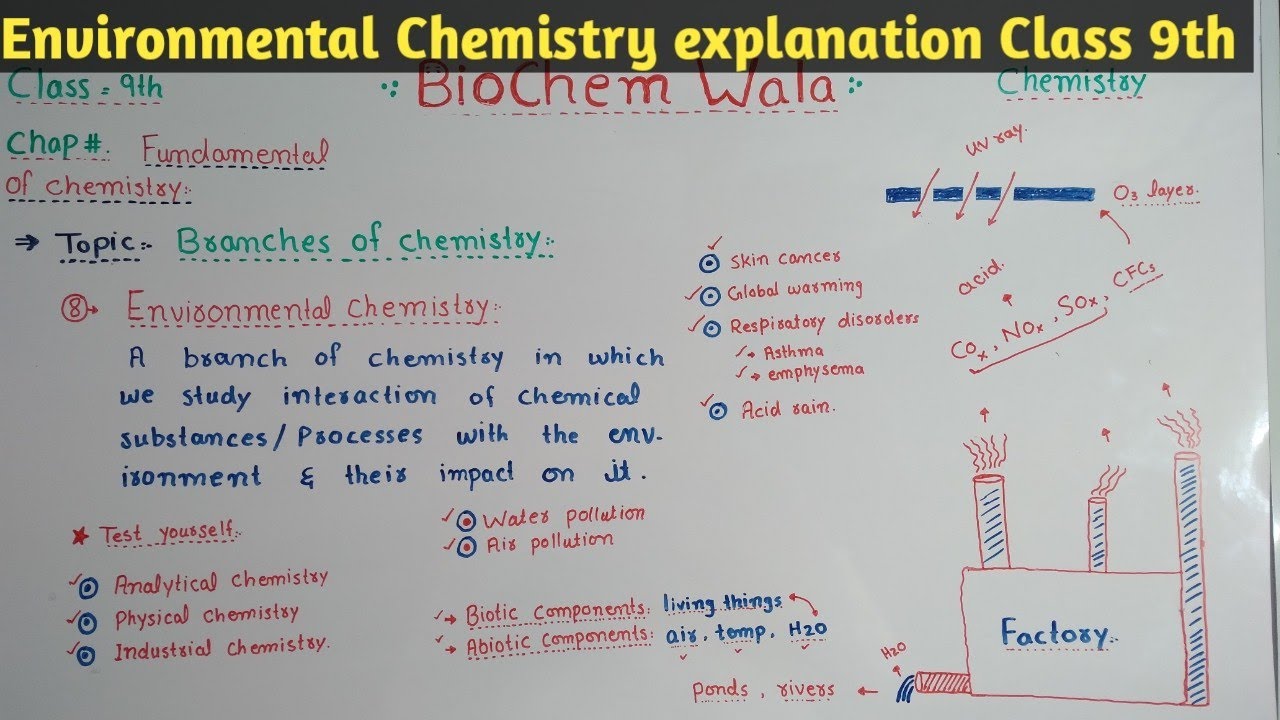 Environmental Chemistry explanation Class 9th
Class = 9th
BioChem Wala
Chemistry
Chap #. Fundamental
of chemistry:-
⇒ Topic:- Branches of chemistry:-
⑧→ Environmental chemistry:-
A branch of chemistry in which
we study interaction of chemical
substances/Processes with the env-
ironment & their impact on it.
★ Test yourself:-
Analytical chemistry
Physical chemistry
Industrial chemistry.
Water pollution
Air pollution
Biotic components: living things
Abiotic components: air, temp, H2O
ponds, rivers
Skin cancer
Global warming
Respiratory disorders
Asthma
emphysema
Acid rain.
UV ray.
O3 layer.
acid.
COx, NOx, SOx, CFCs
Factory:-
H2O